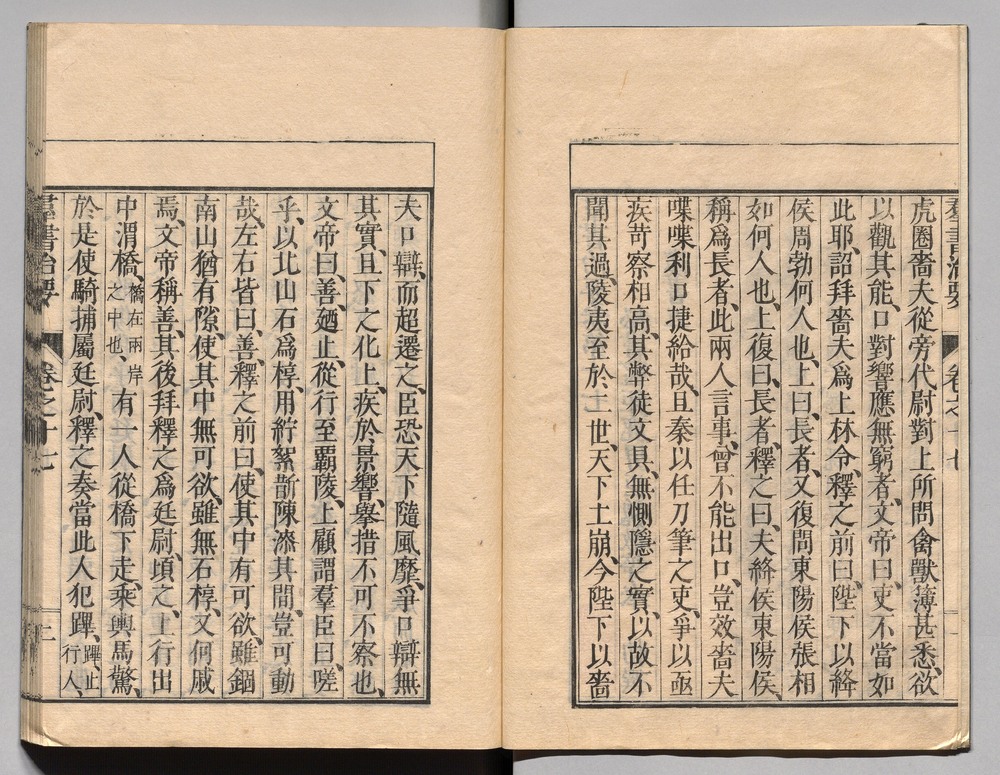 羣書治要
卷之十七
虎圈嗇夫從旁代尉對上所問禽獸簿甚悉、欲
以觀其能、口對響應無窮者、文帝曰、吏不當如
此耶、詔拜嗇夫爲上林令、釋之前曰、陛下以絳
侯周勃何人也、上曰、長者、又復問東陽侯張相
如何人也、上復曰、長者、釋之曰、夫絳侯東陽侯、
稱爲長者、此兩人言事、曾不能出口、豈效嗇夫
喋喋利口捷給哉、且秦以任刀筆之吏、爭以亟
疾苛察相高、其弊徒文具、無惻隱之實、以故不
聞其過、陵夷至於二世、天下土崩、今陛下以嗇
夫口辯、而超遷之、臣恐天下隨風靡、爭口辯無
其實、且下之化上、疾於景響、擧措不可不察也、
文帝曰、善、廼止、從行至霸陵、上顧謂羣臣曰、嗟
乎、以北山石爲椁、用紵絮斮陳漆其間、豈可動
哉、左右皆曰、善、釋之前曰、使其中有可欲、雖錮
南山猶有隙、使其中無可欲、雖無石椁、又何戚
焉、文帝稱善、其後拜釋之爲廷尉、頃之、上行出
中渭橋、橋在兩岸之中也、有一人從橋下走、乘輿馬驚、
於是使騎捕屬廷尉、釋之奏當此人犯蹕、蹕、止行人、
羣書治要
卷之十七